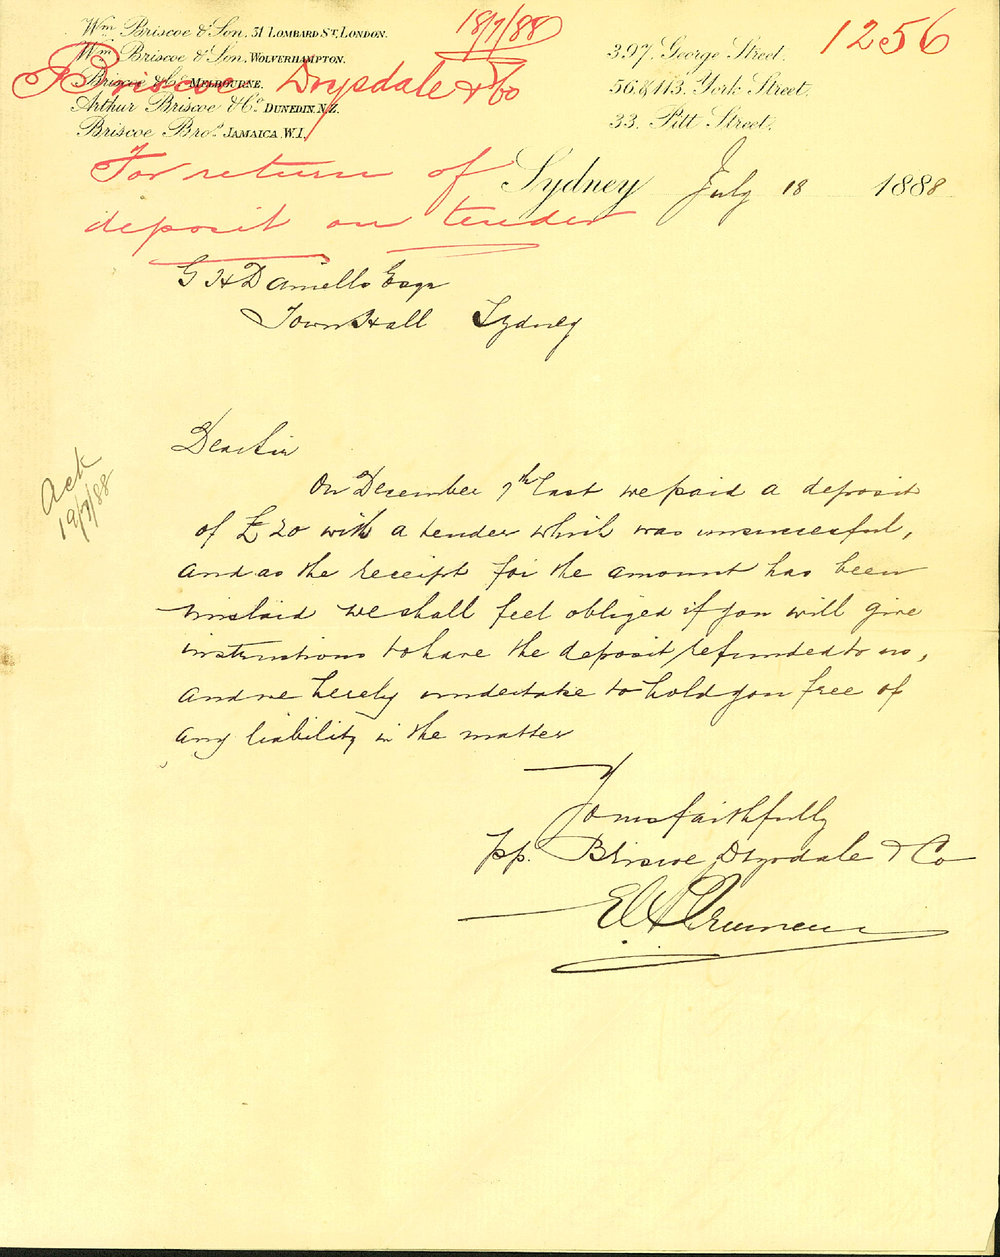 Wm Briscoe & Son. 31 LOMBARD ST, LONDON.
Wm Briscoe & Son. WOLVERHAMPTON.
Briscoe & Co MELBOURNE.
Arthur Briscoe & Co. DUNEDIN. N.Z.
Briscoe Bros. JAMAICA. W.I.
18/7/88
397. George Street.
56 & 113. York Street.
33. Pitt Street.
1256
Briscoe Drysdale & Co
For return of
deposit on tender
Sydney July 18 1888
G H Daniells Esqr
Town Hall Sydney
Ack
19/7/88
Dear Sir
On December 7th last we paid a deposit
of £20 with a tender which was unsuccessful,
and as the receipt for the amount has been
mislaid we shall feel obliged if you will give
instructions to have the deposit refunded to us,
and we hereby undertake to hold you free of
any liability in the matter
Yours faithfully
pp. Briscoe Drysdale & Co